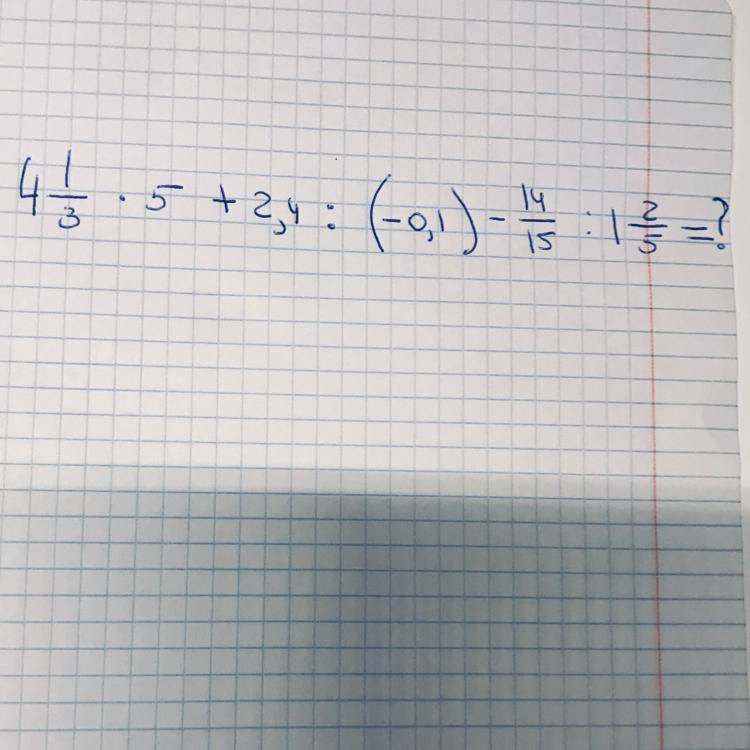 4 1/3 · 5 + 2,4 : (-0,1) - 14/15 : 1 2/5 = ?